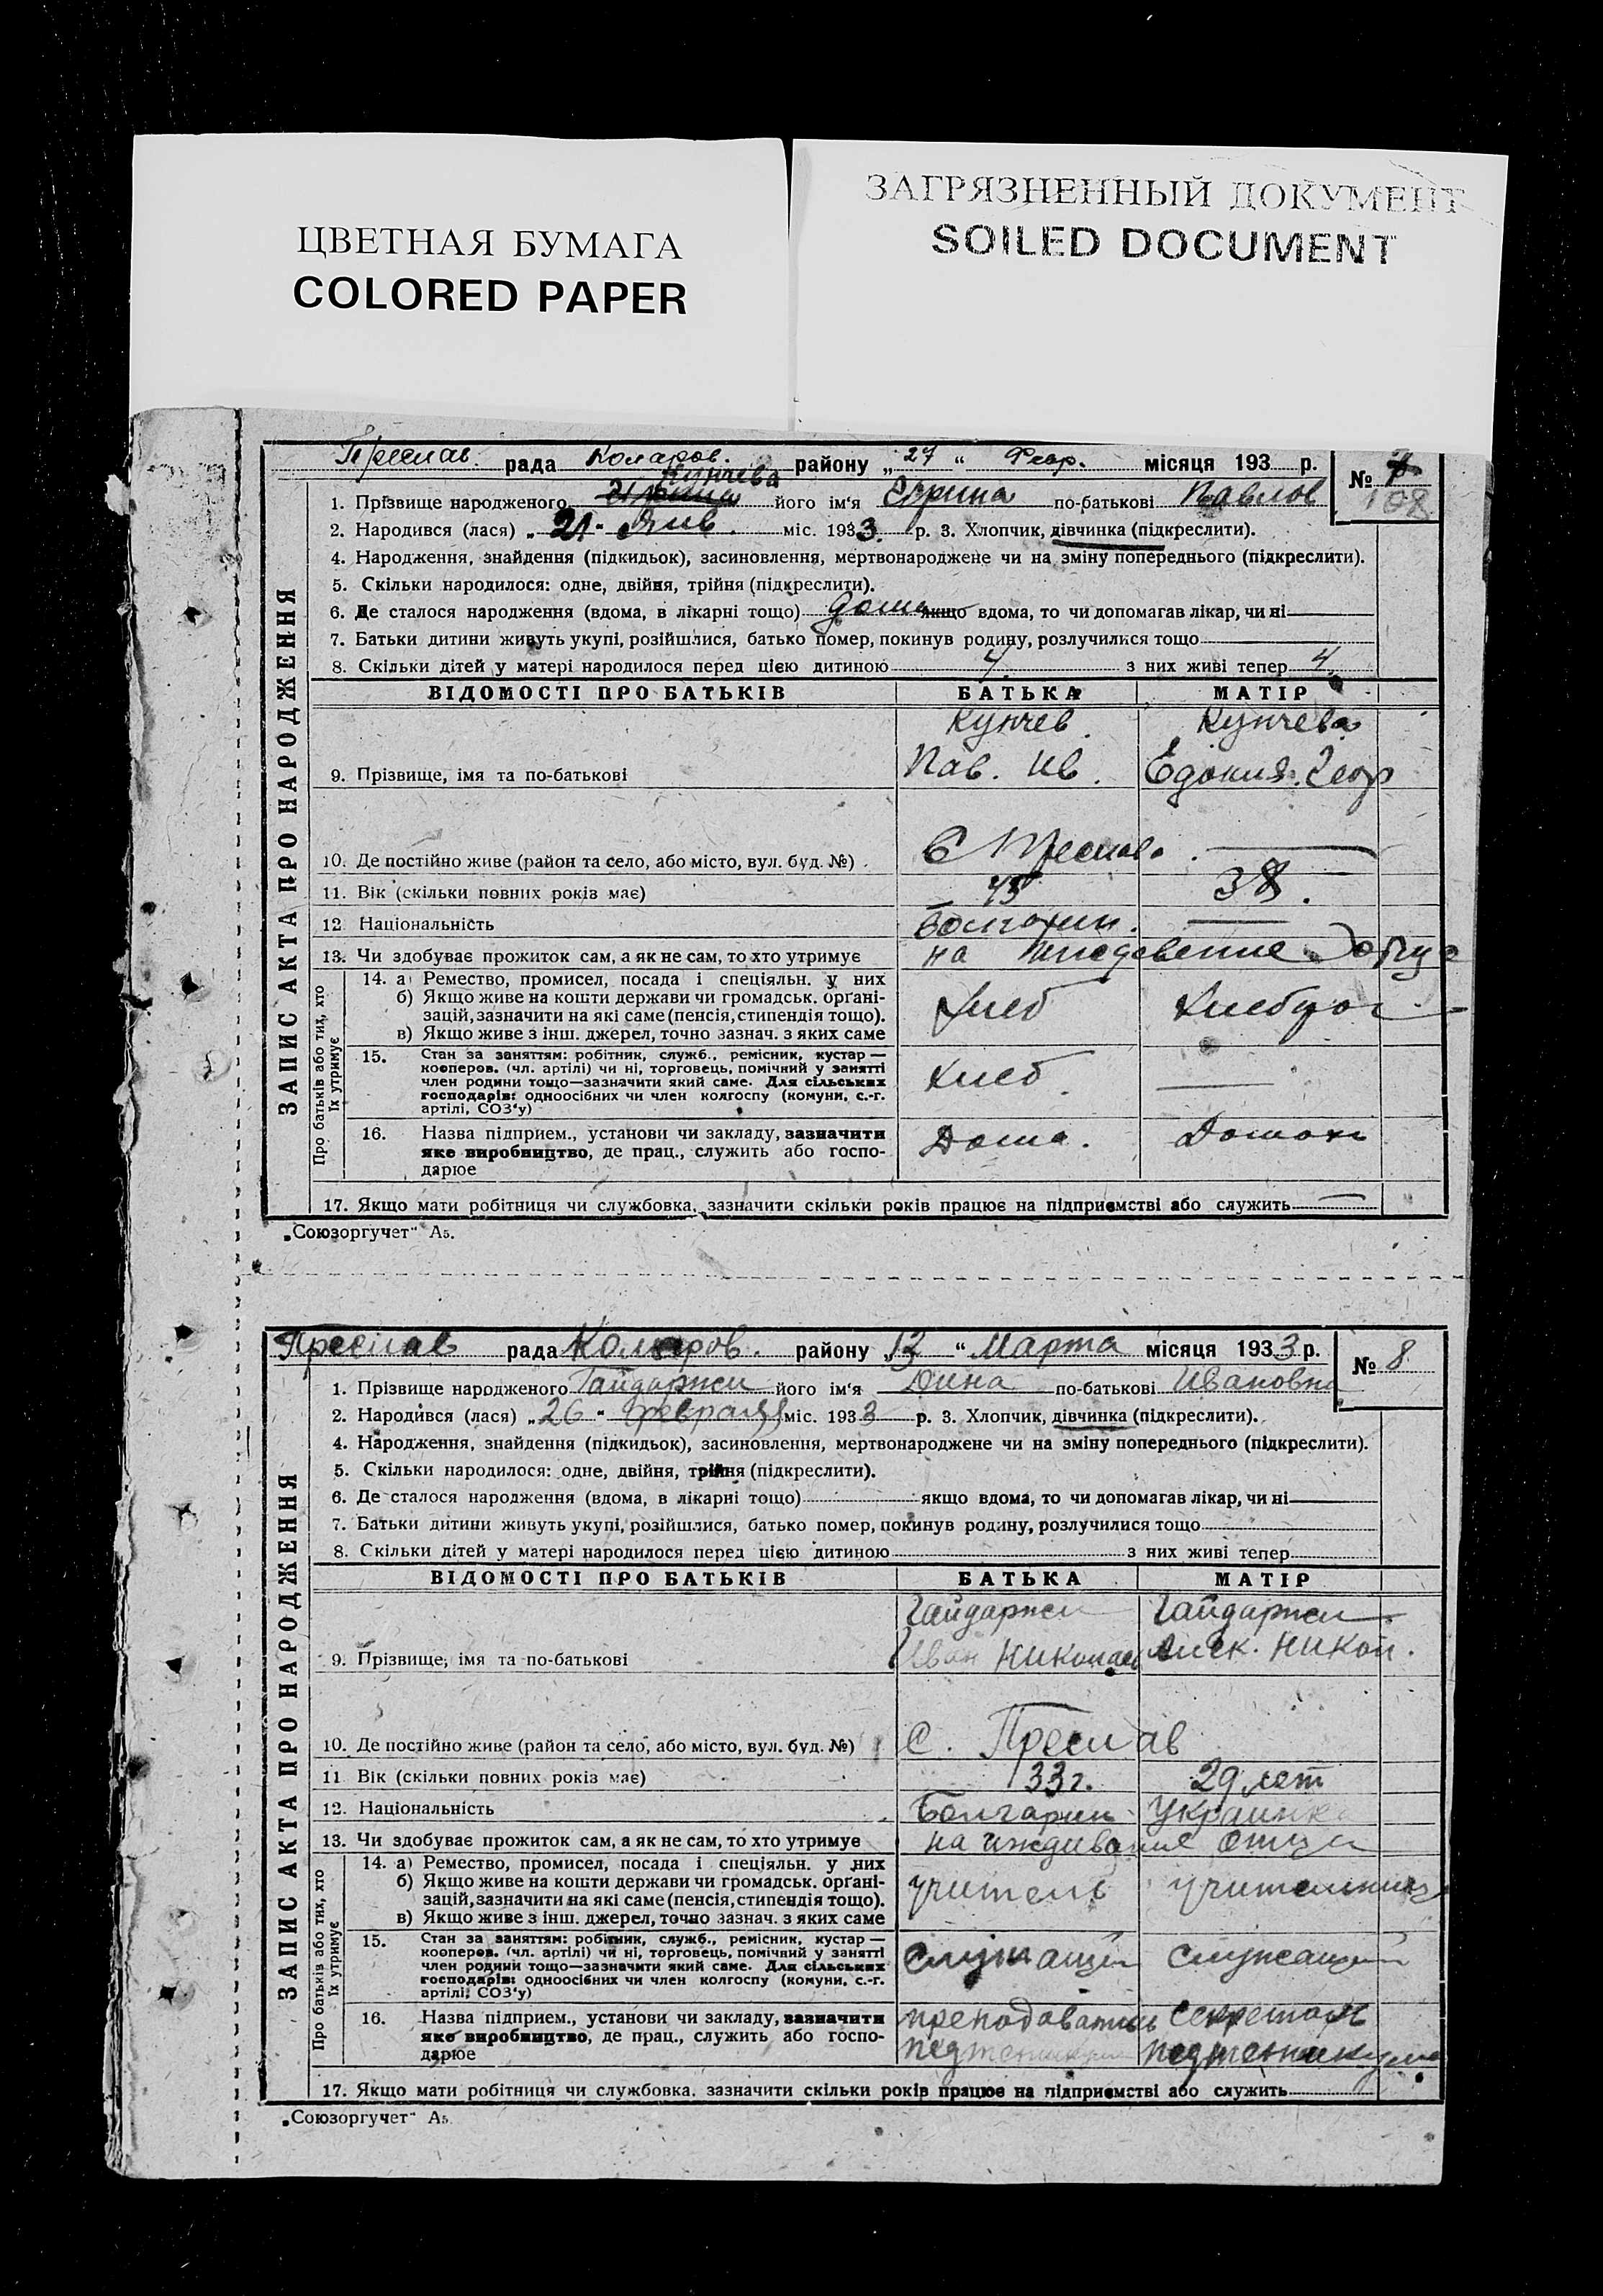 ЦВЕТНАЯ БУМАГА
COLORED PAPER
ЗАГРЯЗНЕННЫЙ ДОКУМЕНТ
SOILED DOCUMENT
ЗАПИС АКТА ПРО НАРОДЖЕННЯ
Преслав. рада Коларов. району „27“ Февр. місяця 193 р.
№ 7
108
Кунчева
1. Прізвище народженого його ім‘я по-батькові Павлов
2. Народився (лася) „21“ Янв. міс. 1933. р. 3. Хлопчик, дівчинка (підкреслити).
4. Народження, знайдення (підкидьок), засиновлення, мертвонароджене чи на зміну попереднього (підкреслити).
5. Скільки народилося: одне, двійня, трійня (підкреслити).
6. Де сталося народження (вдома, в лікарні тощо) дома якщо вдома, то чи допомагав лікар, чи ні
7. Батьки дитини живуть укупі, розійшлися, батько помер, покинув родину, розлучилися тощо
8. Скільки дітей у матері народилося перед цією дитиною 4. з них живі тепер 4
ВІДОМОСТІ ПРО БАТЬКІВ БАТЬКА МАТІР
Кунчев Кунчева
9. Прізвище, імя та по-батькові Пав. Ив. Едокия. Геор
10. Де постійно живе (район та село, або місто, вул. буд. №) С Преслав.
11. Вік (скільки повних років має) 45 38.
12. Національність Болгарин.
13. Чи здобуває прожиток сам, а як не сам, то хто утримує на
Про батьків або тих, хто їх утримує
14. а) Ремество, промисел, посада і спеціяльн. у них
б) Якщо живе на кошти держави чи громадськ. органі-
зацій, зазначити на які саме (пенсія, стипендія тощо). Хлеб
в) Якщо живе з інш. джерел, точно зазнач. з яких саме
15. Стан за заняттям: робітник, служб., ремісник, кустар —
кооперов. (чл. артілі) чи ні, торговець, помічний у занятті
член родини тощо—зазначити який саме. Для сільських Хлеб
господарів: одноосібних чи член колгоспу (комуни, с.-г.
артілі, СОЗ‘у)
16. Назва підприєм., установи чи закладу, зазначити Дома.
яке виробництво, де прац., служить або госпо-
дарює
17. Якщо мати робітниця чи службовка, зазначити скільки років працює на підприємстві або служить
„Союзоргучет“ А5.
ЗАПИС АКТА ПРО НАРОДЖЕННЯ
Преслав рада Коларов. району „13“ Марта місяця 1933 р.
№ 8
1. Прізвище народженого Гайдаржи його ім‘я Дина по-батькові Ивановна
2. Народився (лася) „26“ февраля міс. 1933 р. 3. Хлопчик, дівчинка (підкреслити).
4. Народження, знайдення (підкидьок), засиновлення, мертвонароджене чи на зміну попереднього (підкреслити).
5. Скільки народилося: одне, двійня, трійня (підкреслити).
6. Де сталося народження (вдома, в лікарні тощо) якщо вдома, то чи допомагав лікар, чи ні
7. Батьки дитини живуть укупі, розійшлися, батько помер, покинув родину, розлучилися тощо
8. Скільки дітей у матері народилося перед цією дитиною з них живі тепер
ВІДОМОСТІ ПРО БАТЬКІВ БАТЬКА МАТІР
Гайдаржи Гайдаржи
9. Прізвище, імя та по-батькові Иван Николаев Алек. Никол.
10. Де постійно живе (район та село, або місто, вул. буд. №) С. Преслав
11 Вік (скільки повних років має) 33 г. 29 лет
12. Національність Болгарин Украинка
13. Чи здобуває прожиток сам, а як не сам, то хто утримує на иждивение отца
Про батьків або тих, хто їх утримує
14. а) Ремество, промисел, посада і спеціяльн. у них
б) Якщо живе на кошти держави чи громадськ. органі-
зацій, зазначити на які саме (пенсія, стипендія тощо). учитель учительница
в) Якщо живе з інш. джерел, точно зазнач. з яких саме
15. Стан за заняттям: робітник, служб., ремісник, кустар —
кооперов. (чл. артілі) чи ні, торговець, помічний у занятті служащий служащий
член родини тощо—зазначити який саме. Для сільських
господарів: одноосібних чи член колгоспу (комуни, с.-г.
артілі, СОЗ‘у)
16. Назва підприєм., установи чи закладу, зазначити преподаватель секретарь
яке виробництво, де прац., служить або госпо- педтехникума педтехникума
дарює
17. Якщо мати робітниця чи службовка, зазначити скільки років працює на підприємстві або служить
„Союзоргучет“ А5